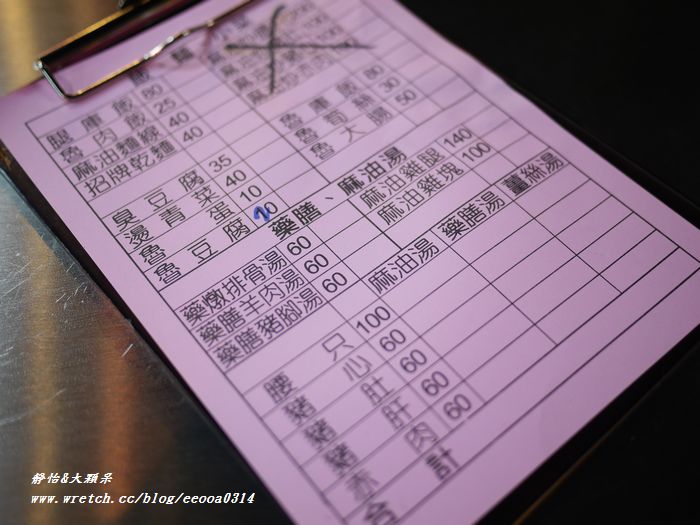 腿庫飯 80
魯肉飯 25
麻油麵線 40
招牌乾麵 40
魯腿庫 80
魯筍絲 30
魯大腸 50
臭豆腐 35
燙青菜 40
魯蛋 10
魯豆腐 20
藥膳、麻油湯
麻油雞腿 140
麻油雞塊 100
藥燉排骨湯 60
藥膳羊肉湯 60
藥膳豬腳湯 60
麻油湯 藥膳湯 薑絲湯
腰只 100
豬心 60
豬肚 60
豬肝 60
赤肉 60
合計
靜怡&大顆呆
www.wretch.cc/blog/eeooa0314